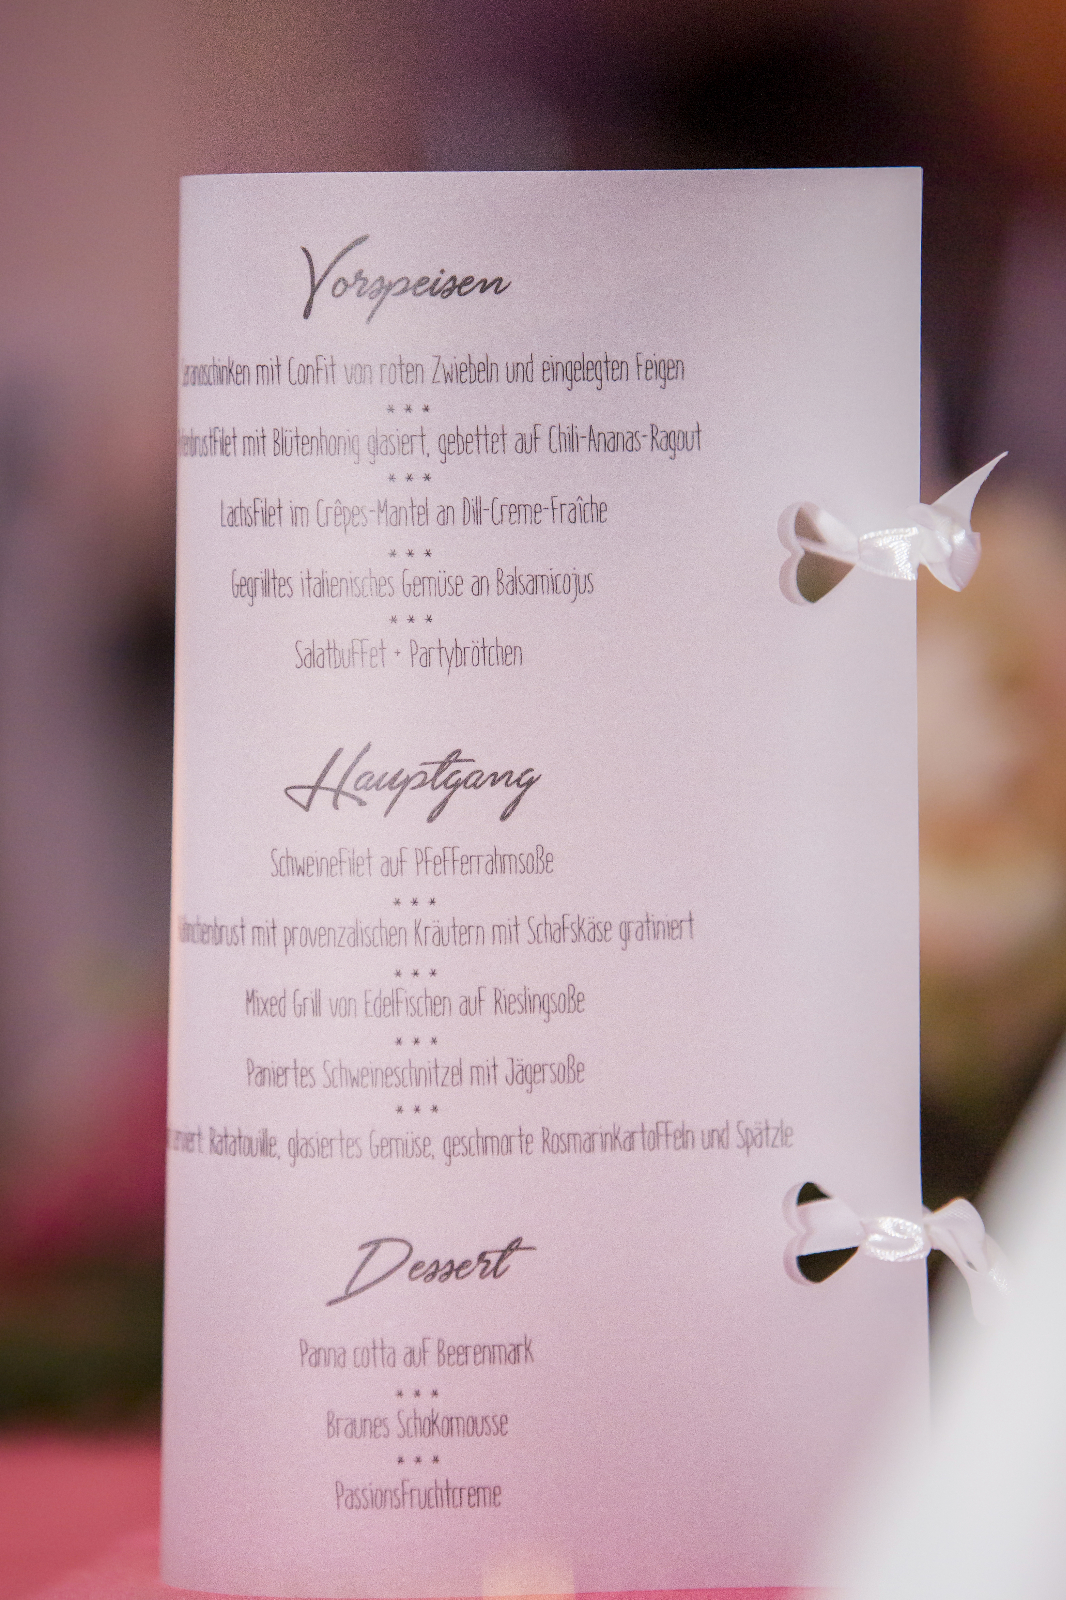 Vorspeisen
mit Confit von roten Zwiebeln und eingelegten Feigen
* * *
mit Blütenhonig glasiert, gebettet auf Chili-Ananas-Ragout
* * *
Lachsfilet im Crêpes-Mantel an Dill-Creme-Fraîche
* * *
Gegrilltes italienisches Gemüse an Balsamicojus
* * *
Salatbuffet + Partybrötchen
Hauptgang
Schweinefilet auf Pfefferrahmsoße
* * *
mit provenzalischen Kräutern mit Schafskäse gratiniert
* * *
Mixed Grill von Edelfischen auf Rieslingsoße
* * *
Paniertes Schweineschnitzel mit Jägersoße
* * *
Ratatouille, glasiertes Gemüse, geschmorte Rosmarinkartoffeln und Spätzle
Dessert
Panna cotta auf Beerenmark
* * *
Braunes Schokomousse
* * *
Passionsfruchtcreme